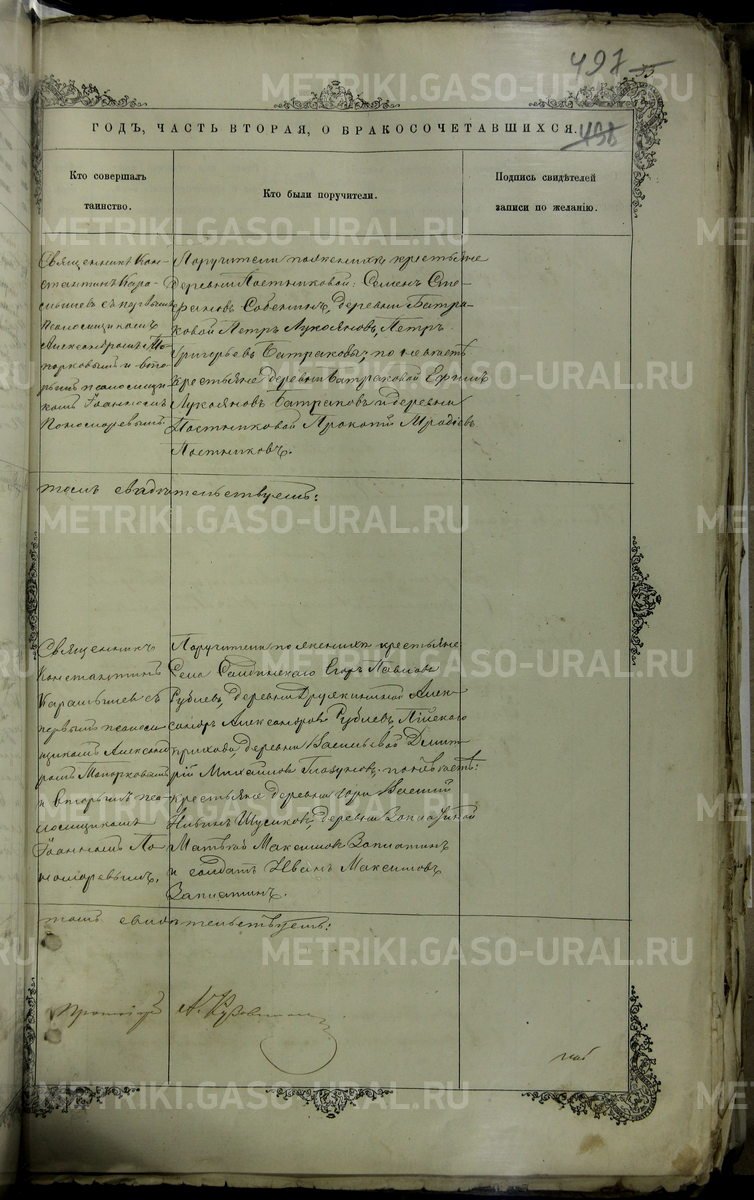 497
35
438
ГОДЪ, ЧАСТЬ ВТОРАЯ, О БРАКОСОЧЕТАВШИХСЯ.
Кто совершалъ
таинство.
Кто были поручители.
Подпись свидѣтелей
записи по желанію.
Священникъ Кон-
стантинъ Кара-
мышевъ съ первымъ
псаломщикомъ
Александромъ То-
порковымъ и вто-
рымъ псаломщи-
комъ Іоанномъ
Пономаревымъ.
Поручители по женихѣ крестьяне
деревни Постниковой: Семенъ Сте-
фановъ Собенинъ, деревни Батра-
ковой Петръ Лукояновъ, Петръ
Григорьевъ Батраковы; по невѣстѣ
крестьяне деревни Батраковой Ефимъ
Лукояновъ Батраковъ и деревни
Постниковой Прокопій
Постниковъ.
томъ свидѣтельствуемъ:
Священникъ
Константинъ
Карамышевъ съ
первымъ псалом-
щикомъ Алексан-
ромъ Топорковымъ
и вторымъ пса-
ломщикомъ
Іоанномъ По-
номаревымъ.
Поручители по женихѣ крестьяне
Села Салдинскаго Егоръ Павловъ
Рублевъ, деревни Алек-
сандръ Александровъ Рублевъ,
прихода, деревни Васильевой Дмит-
рій Михайловъ Глазуновъ; по невѣстѣ:
крестьяне деревни Василій
Ильинъ деревни Заплатиной
Матвѣй Максимовъ Заплатинъ
и солдатъ Иванъ Максимовъ
Заплатинъ.
томъ свидѣтельствуемъ:
Протоіерей А.
METRIKI.GASO-URAL.RU